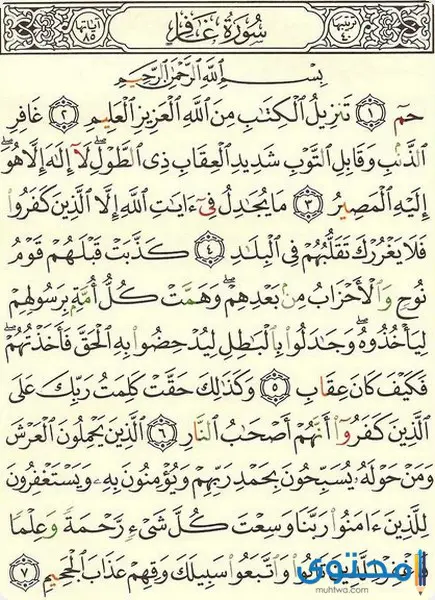 ترتيبها ٤٠ سُورَةُ غَافِرٍ آياتها ٨٥
بِسْمِ ٱللَّهِ ٱلرَّحْمَٰنِ ٱلرَّحِيمِ
حمٓ ١ تَنزِيلُ ٱلْكِتَٰبِ مِنَ ٱللَّهِ ٱلْعَزِيزِ ٱلْعَلِيمِ ٢ غَافِرِ
ٱلذَّنۢبِ وَقَابِلِ ٱلتَّوْبِ شَدِيدِ ٱلْعِقَابِ ذِى ٱلطَّوْلِ ۖ لَآ إِلَٰهَ إِلَّا هُوَ ۖ
إِلَيْهِ ٱلْمَصِيرُ ٣ مَا يُجَٰدِلُ فِىٓ ءَايَٰتِ ٱللَّهِ إِلَّا ٱلَّذِينَ كَفَرُوا۟
فَلَا يَغْرُرْكَ تَقَلُّبُهُمْ فِى ٱلْبِلَٰدِ ٤ كَذَّبَتْ قَبْلَهُمْ قَوْمُ
نُوحٍ وَٱلْأَحْزَابُ مِنۢ بَعْدِهِمْ ۖ وَهَمَّتْ كُلُّ أُمَّةٍۭ بِرَسُولِهِمْ
لِيَأْخُذُوهُ ۖ وَجَٰدَلُوا۟ بِٱلْبَٰطِلِ لِيُدْحِضُوا۟ بِهِ ٱلْحَقَّ فَأَخَذْتُهُمْ ۖ
فَكَيْفَ كَانَ عِقَابِ ٥ وَكَذَٰلِكَ حَقَّتْ كَلِمَتُ رَبِّكَ عَلَى
ٱلَّذِينَ كَفَرُوٓا۟ أَنَّهُمْ أَصْحَٰبُ ٱلنَّارِ ٦ ٱلَّذِينَ يَحْمِلُونَ ٱلْعَرْشَ
وَمَنْ حَوْلَهُۥ يُسَبِّحُونَ بِحَمْدِ رَبِّهِمْ وَيُؤْمِنُونَ بِهِۦ وَيَسْتَغْفِرُونَ
لِلَّذِينَ ءَامَنُوا۟ رَبَّنَا وَسِعْتَ كُلَّ شَىْءٍ رَّحْمَةً وَعِلْمًا
فَٱغْفِرْ لِلَّذِينَ تَابُوا۟ وَٱتَّبَعُوا۟ سَبِيلَكَ وَقِهِمْ عَذَابَ ٱلْجَحِيمِ ٧
محتوى
muhtwa.com